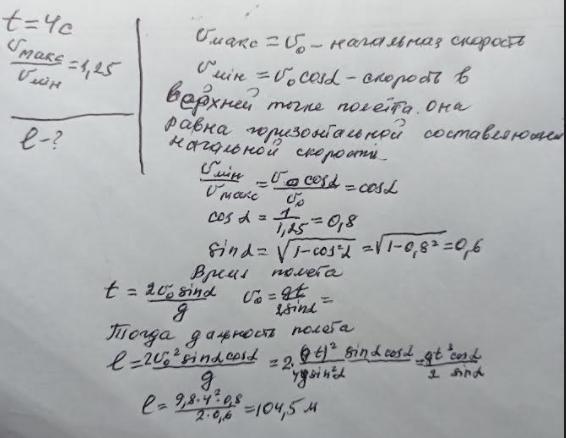 t = 4c
υмакс/υмін = 1,25
l - ?
υмакс = υ₀ - начальная скорость
υмін = υ₀ cosα - скорость в
верхней точке полета. Она
равна горизонтальной составляющей
начальной скорости.
υмін/υмакс = υ₀ cosα/υ₀ = cosα
cosα = 1/1,25 = 0,8
sinα = √(1-cos²α) = √(1-0,8²) = 0,6
Время полета
t = 2υ₀ sinα/g υ₀ = gt/2sinα =
Тогда дальность полета
l = 2υ₀² sinα cosα/g = 2·(gt)² sinα cosα/4g sin²α = gt² cosα/2 sinα
l = 9,8·4²·0,8/2·0,6 = 104,5 м